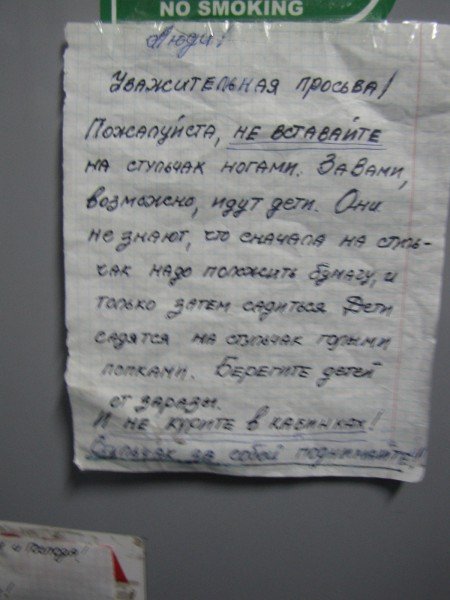 NO SMOKING
Люди!
Уважительная просьба!
Пожалуйста, не вставайте
на стульчак ногами. За Вами,
возможно, идут дети. Они
не знают, что сначала на стуль-
чак надо положить бумагу, и
только затем садиться. Дети
садятся на стульчак голыми
попками. Берегите детей
от заразы.
И не курите в кабинках!
Стульчак за собой поднимайте!!